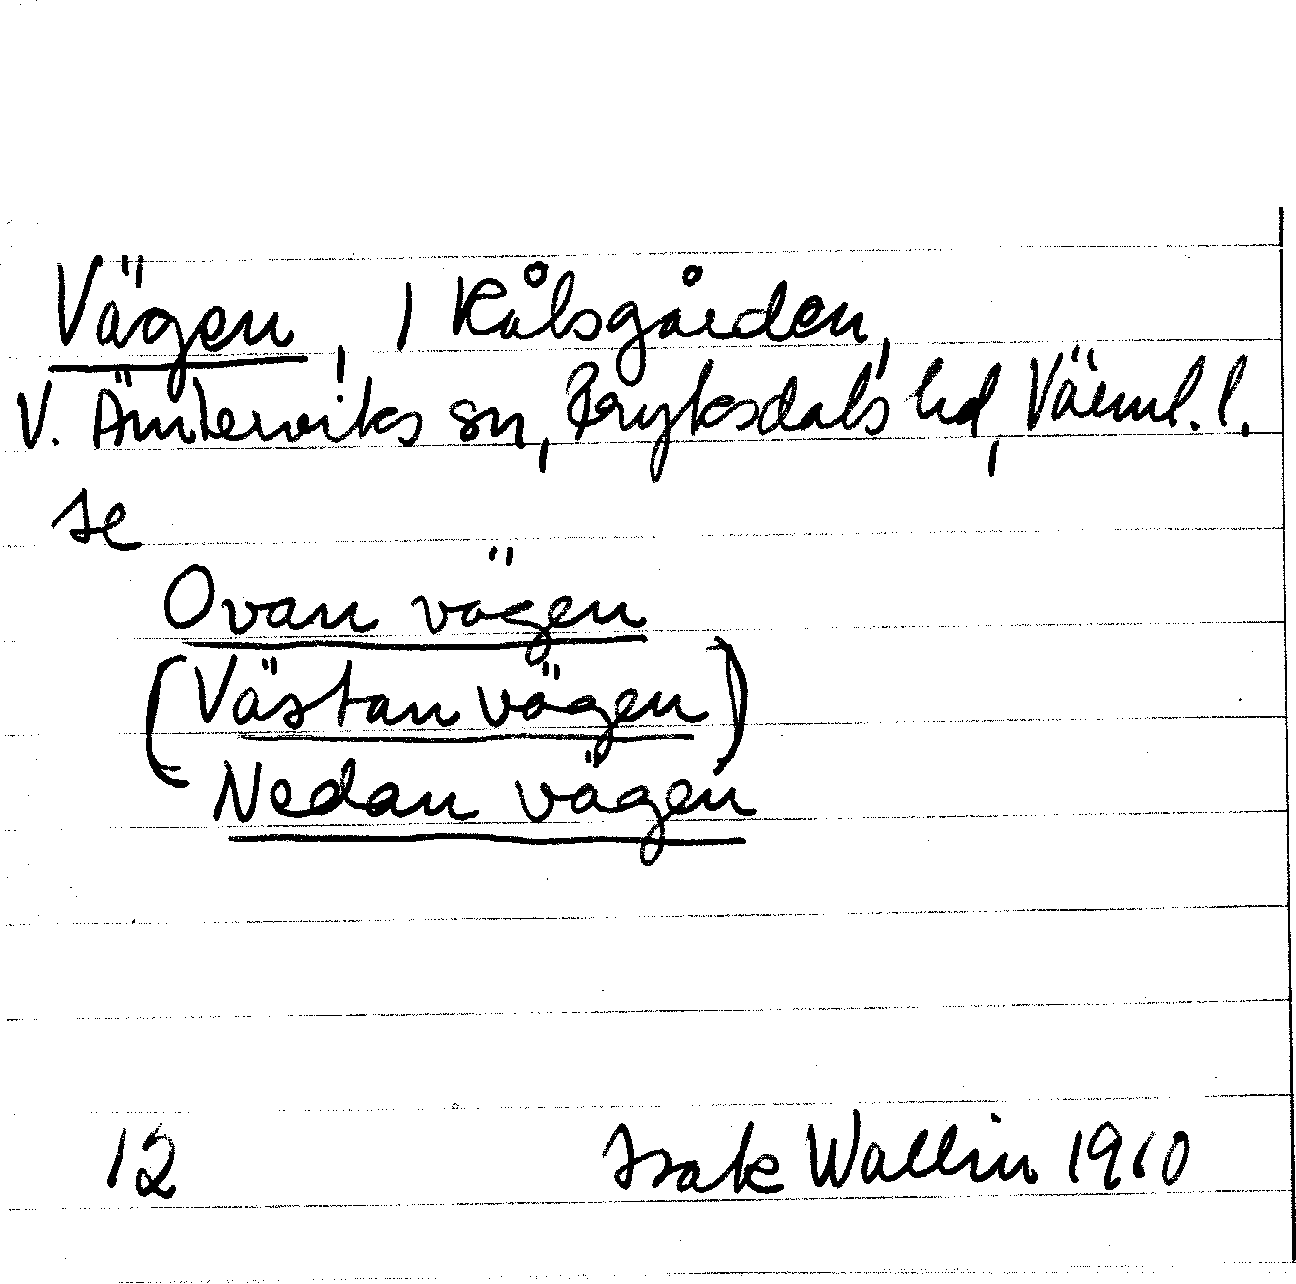 Vägen, 1 Rålsgården,
V. Ämterviks sn, Fryksdals hd, Värml. l.
se
Ovan vägen
(Västan vägen)
Nedan vägen
12 Isak Wallin 1910